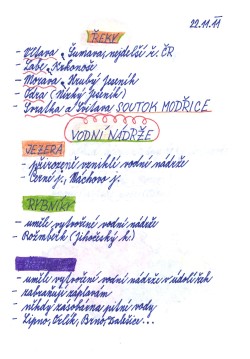 22.11.11
ŘEKY
- Vltava - Šumava, nejdelší ř. ČR
- Labe - Krkonoše
- Morava - Hrubý Jeseník
- Odra (Nízký Jeseník)
- Svratka a Svitava SOUTOK MODŘICE
VODNÍ NÁDRŽE
JEZERA
- přirozeně vzniklé vodní nádrže
- Černé j., Máchovo j.
RYBNÍKY
- uměle vytvořené vodní nádrže
- Rožmberk (Jihočeský k.)
- uměle vytvořené vodní nádrže v údolí řek
- zabraňují záplavám
- někdy zásobárna pitné vody
- Lipno, Orlík, Brno, Dalešice...